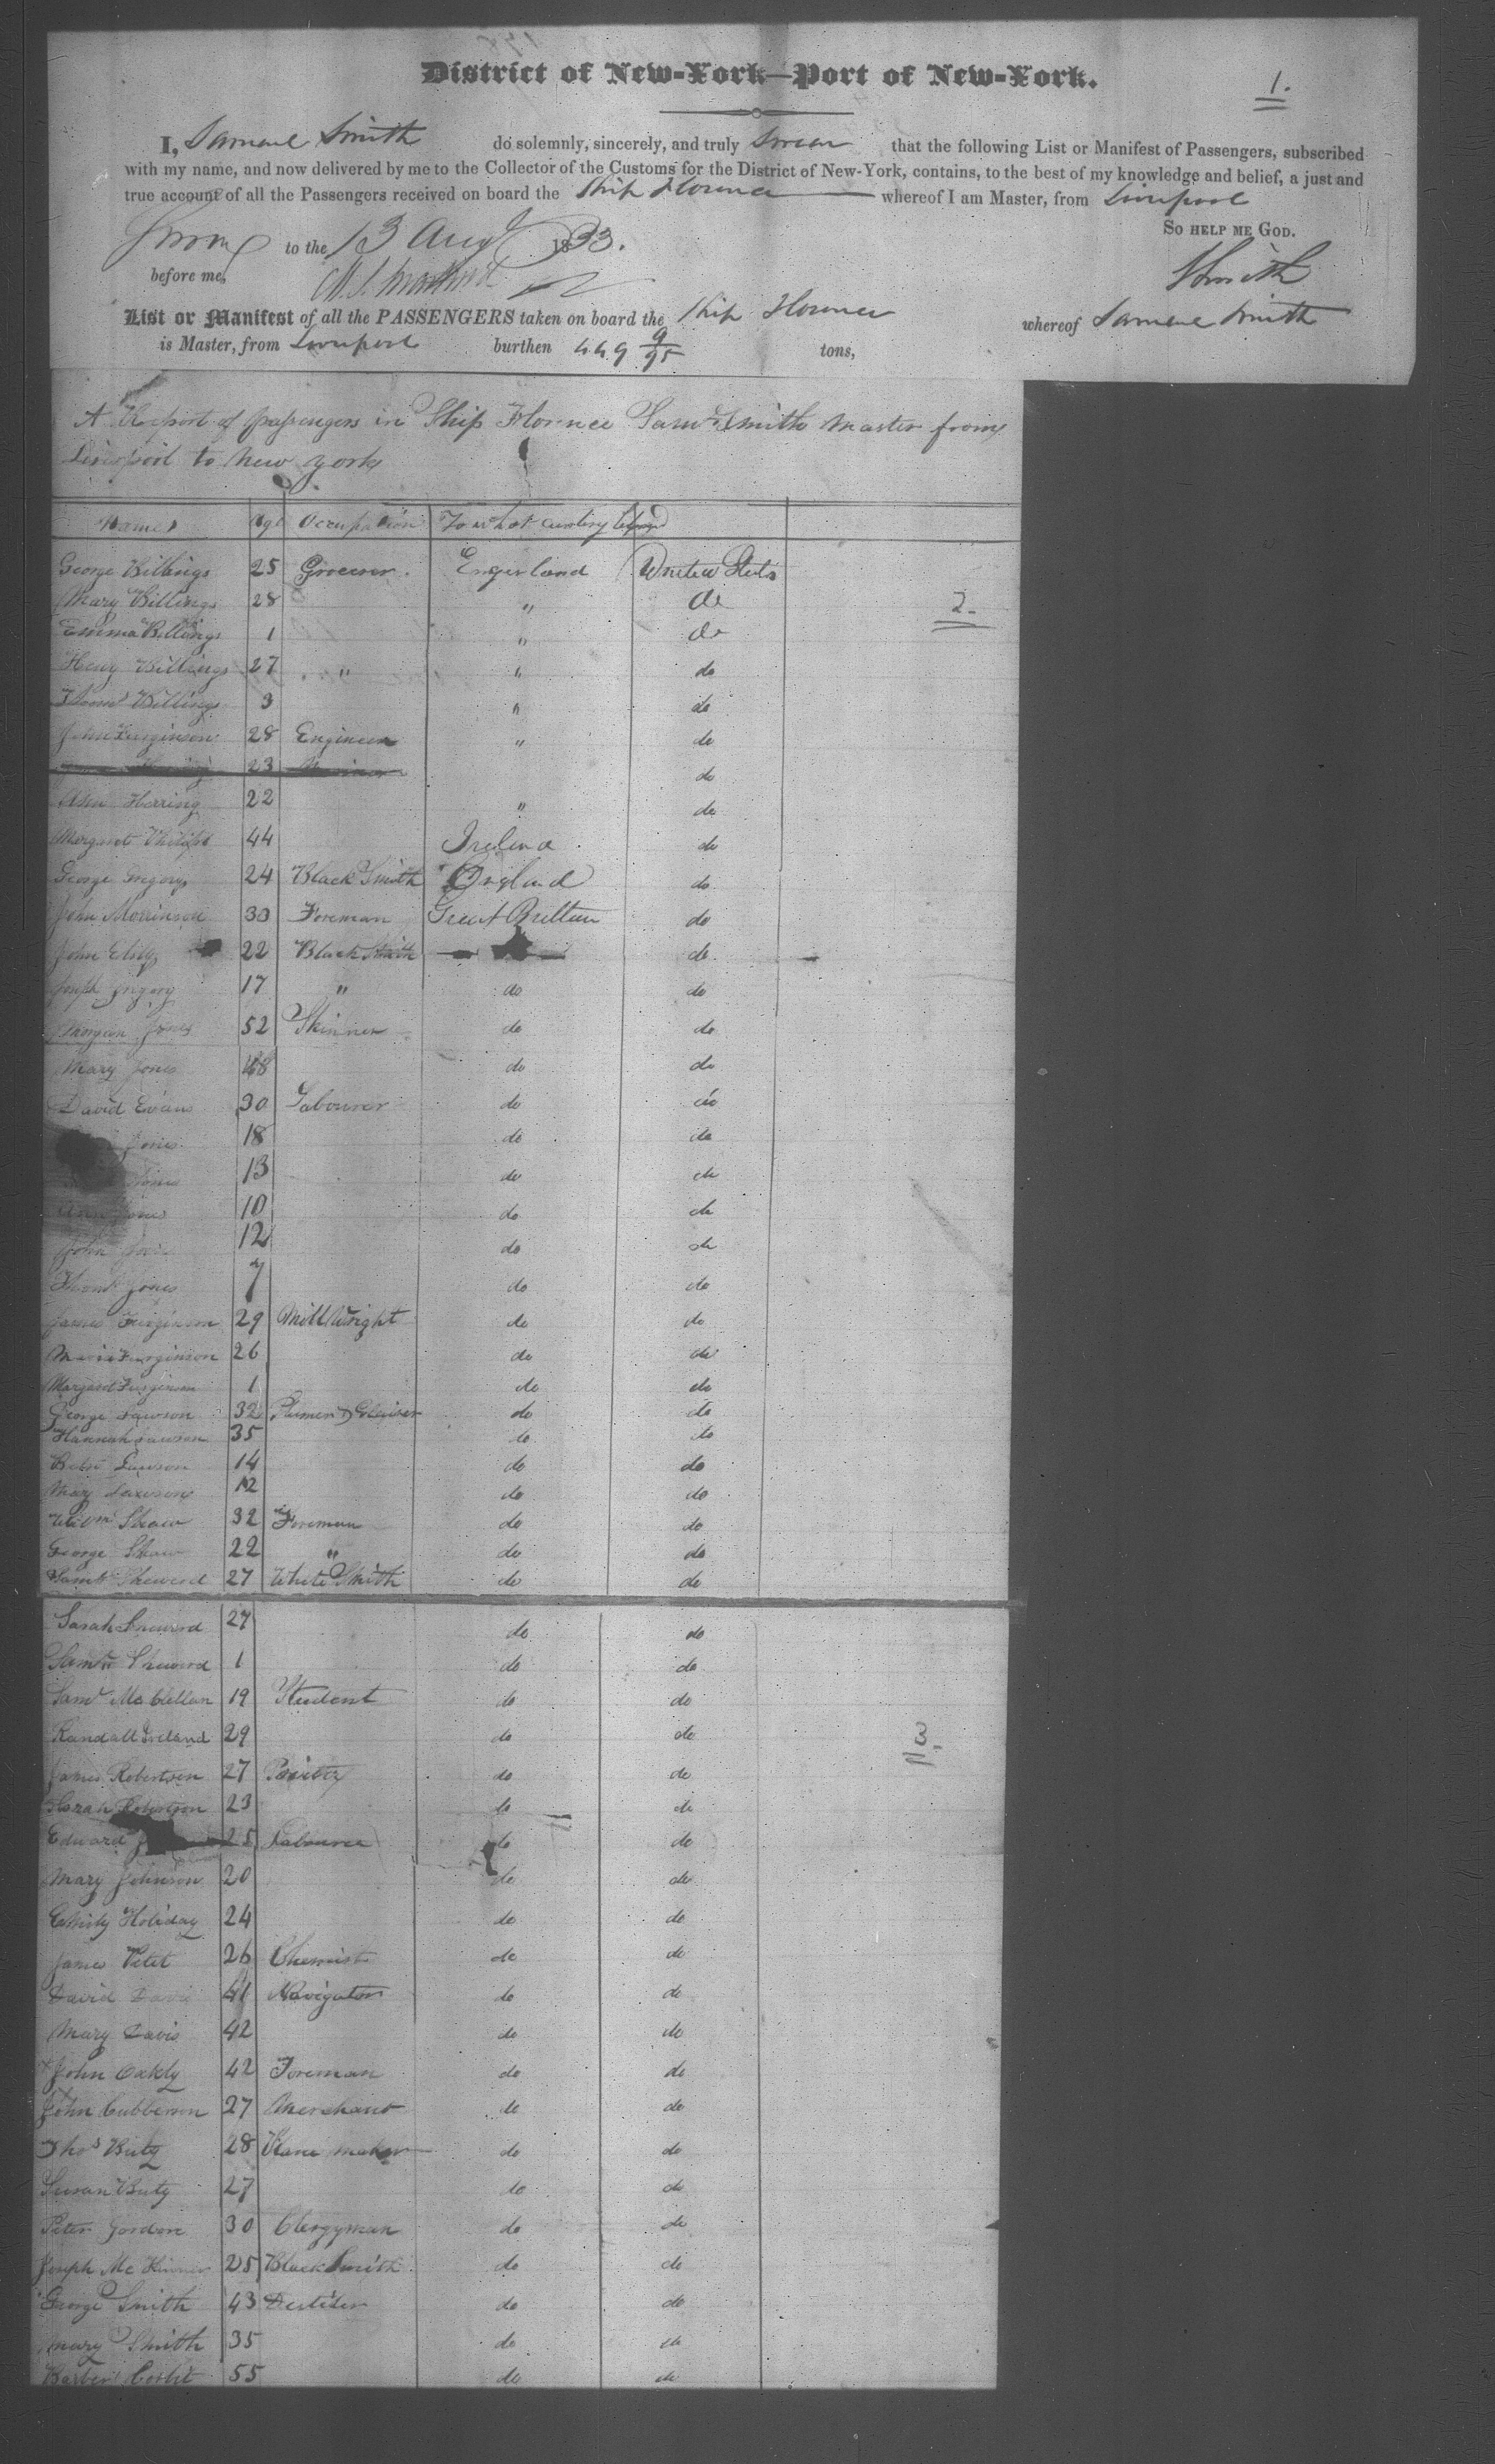 District of New-York—Port of New-York.
1.
I, Samuel Smith do solemnly, sincerely, and truly Swear that the following List or Manifest of Passengers, subscribed
with my name, and now delivered by me to the Collector of the Customs for the District of New-York, contains, to the best of my knowledge and belief, a just and
true account of all the Passengers received on board the Ship Florence whereof I am Master, from Liverpool
So HELP ME GOD.
Sworn to the 13 Augt 1833.
before me, SSmith
List or Manifest of all the PASSENGERS taken on board the Ship Florence whereof Samuel Smith
is Master, from Liverpool burthen 449 9/95 tons,
A Report of passengers in Ship Florence Saml Smith Master from
Liverpool to New york
Names Age Occupation To what country belong
George Billings 25 Grocerer England United Stats
Mary Billings 28 " do 2.
Emma Billings 1 " do
Heny Billings 27 " " do
Thoms Billings 3 " do
John Furginson 28 Engineer " do
23 do
Ann Herring 22 " do
Margaret 44 Irelend do
George Gregory 24 Black Smith England do
John Morrinson 30 Foreman Great Brittan do
John 22 Black Smith do
Joseph Gregory 17 " do do
Morgan Jones 52 Skinner do do
Mary Jones 48 do do
David Evans 30 Labourer do do
Jones 18 do do
Jones 13 do do
Ann Jones 10 do do
John Jones 12 do do
Thoms Jones 7 do do
James Furginson 29 Mill Wright do do
Maria Furginson 26 do do
Margaret Furginson 1 do do
George Lawson 32 Plumer & Glaiser do do
Hannah Lawson 35 do do
Robt Lawson 14 do do
Mary Lawson 12 do do
Willm Shaw 32 Foreman do do
George Shaw 22 " do do
Saml Sheward 27 White Smith do do
Sarah Sheward 27 do do
Saml Sheward 1 do do
Saml McClellan 19 Student do do
Randall Ireland 29 do do 3.
James Robertson 27 do do
Sarah Robertson 23 do do
Edward 25 Labourer do do
Mary Johnson 20 do do
Emily Holiday 24 do do
James Petet 26 Chemist do do
David Davis 41 Navigator do do
Mary Davis 42 do do
John Oakly 42 Foreman do do
John Cubberson 27 Merchant do do
Thos Buty 28 maker do do
Susan Buty 27 do do
Peter Gordon 30 Clergyman do do
Joseph Mc 25 Black Smith do do
George Smith 43 Destiler do do
Mary Smith 35 do do
Barber Corbet 55 do do